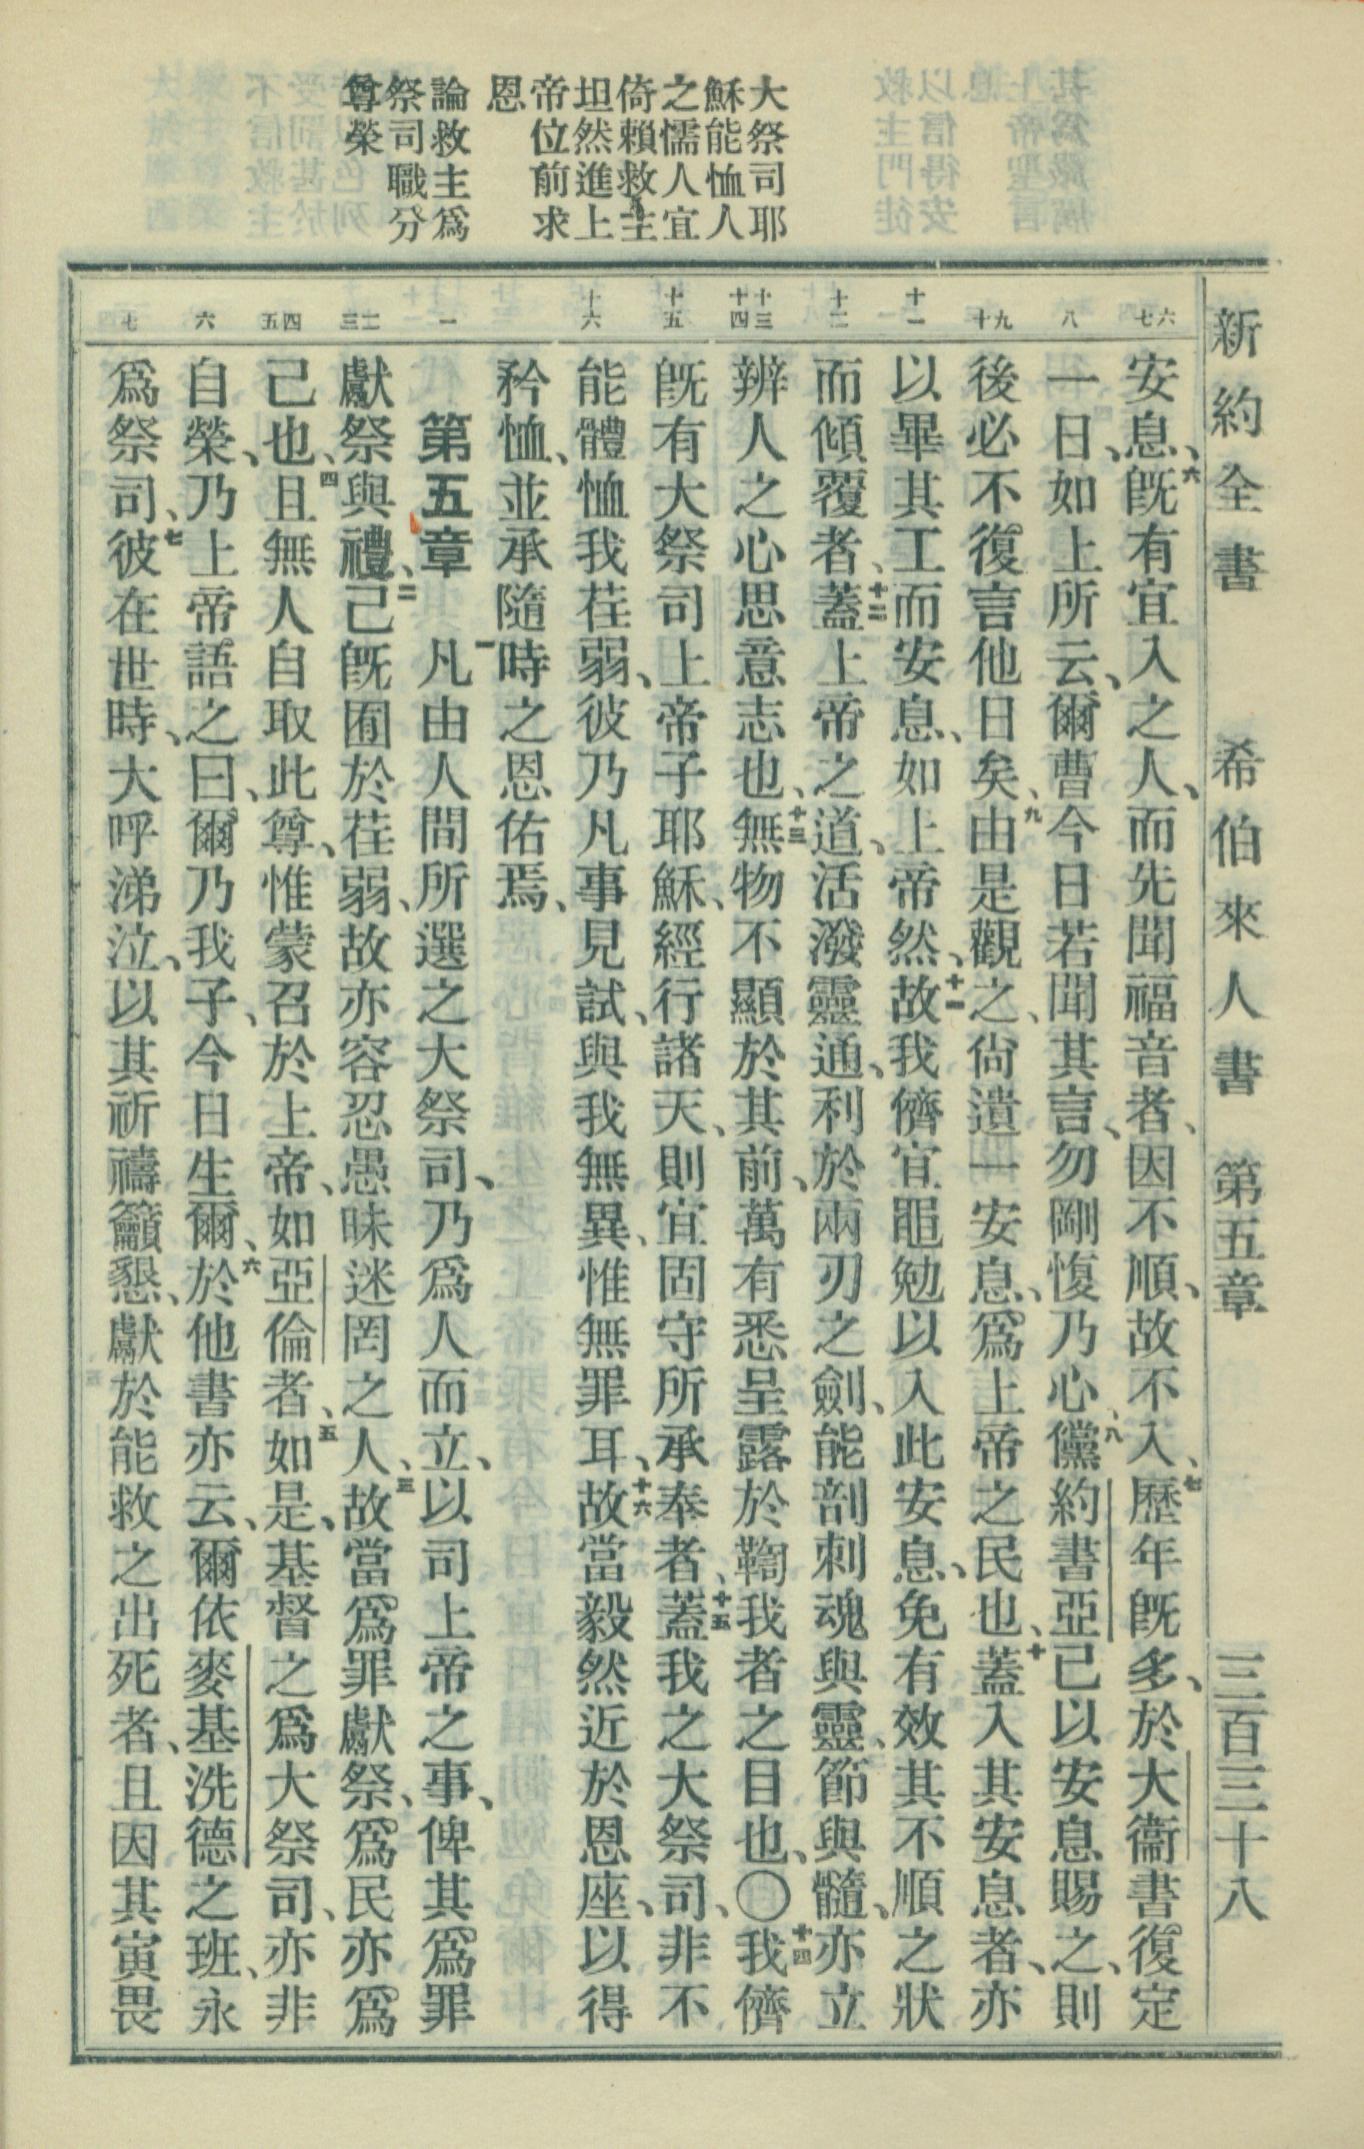 新約全書 希伯來人書 第五章 三百三十八
大祭司耶
穌能恤人
之懦人宜
倚賴救主
坦然進上
帝位前求
恩
論救主爲
祭司職分
尊榮
六 七
八
九 十
十一
十二
十三 十四
十五
十六
一
二 三
四 五
六
七
安息、六既有宜入之人、而先聞福音者、因不順、故不入、七歷年既多、於大衞書復定
一日、如上所云、爾曹今日若聞其言、勿剛愎乃心、八儻約書亞已以安息賜之、則
後必不復言他日矣、九由是觀之、尙遺一安息、爲上帝之民也、十蓋入其安息者、亦
以畢其工而安息、如上帝然、十一故我儕宜黽勉以入此安息、免有效其不順之狀
而傾覆者、十二蓋上帝之道、活潑靈通、利於兩刃之劍、能剖刺魂與靈、節與髓、亦立
辨人之心思意志也、十三無物不顯於其前、萬有悉呈露於鞫我者之目也、〇十四我儕
既有大祭司上帝子耶穌、經行諸天、則宜固守所承奉者、十五蓋我之大祭司、非不
能體恤我荏弱、彼乃凡事見試、與我無異、惟無罪耳、十六故當毅然近於恩座、以得
矜恤、並承隨時之恩佑焉、
第五章 一凡由人間所選之大祭司、乃爲人而立、以司上帝之事、俾其爲罪
獻祭與禮、二己既囿於荏弱、故亦容忍愚昧迷罔之人、三故當爲罪獻祭、爲民亦爲
己也、四且無人自取此尊、惟蒙召於上帝、如亞倫者、五如是、基督之爲大祭司、亦非
自榮、乃上帝語之曰、爾乃我子、今日生爾、六於他書亦云、爾依麥基洗德之班、永
爲祭司、七彼在世時、大呼涕泣、以其祈禱籲懇、獻於能救之出死者、且因其寅畏